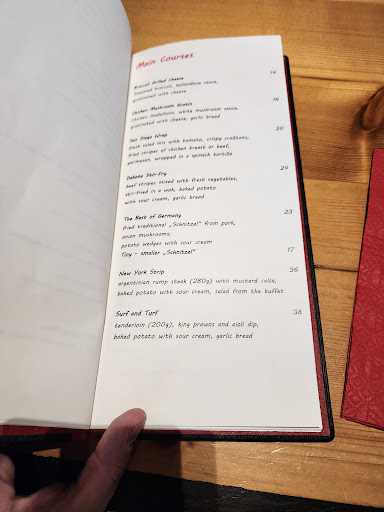 Main Courses
Broccoli Grilled Cheese 14
Steamed broccoli, hollandaise sauce,
gratinated with cheese
Chicken Mushroom Gratin 18
Chicken medallions, white mushroom sauce,
gratinated with cheese, garlic bread
San Diego Wrap 20
fresh salad mix with tomato, crispy croûtons,
fried stripes of chicken breast or beef,
parmesan, wrapped in a spinach tortilla
Dakota Stir-Fry 24
beef stripes mixed with fresh vegetables,
stir-fried in a wok, baked potato
with sour cream, garlic bread
The Best of Germany 23
fried traditional „Schnitzel" from pork,
onion mushrooms,
potato wedges with sour cream
Tiny - smaller „Schnitzel" 17
New York Strip 36
argentinian rump steak (280g) with mustard salsa,
baked potato with sour cream, salad from the buffet
Surf and Turf 38
tenderloin (200g), king prawns and aioli dip,
baked potato with sour cream, garlic bread